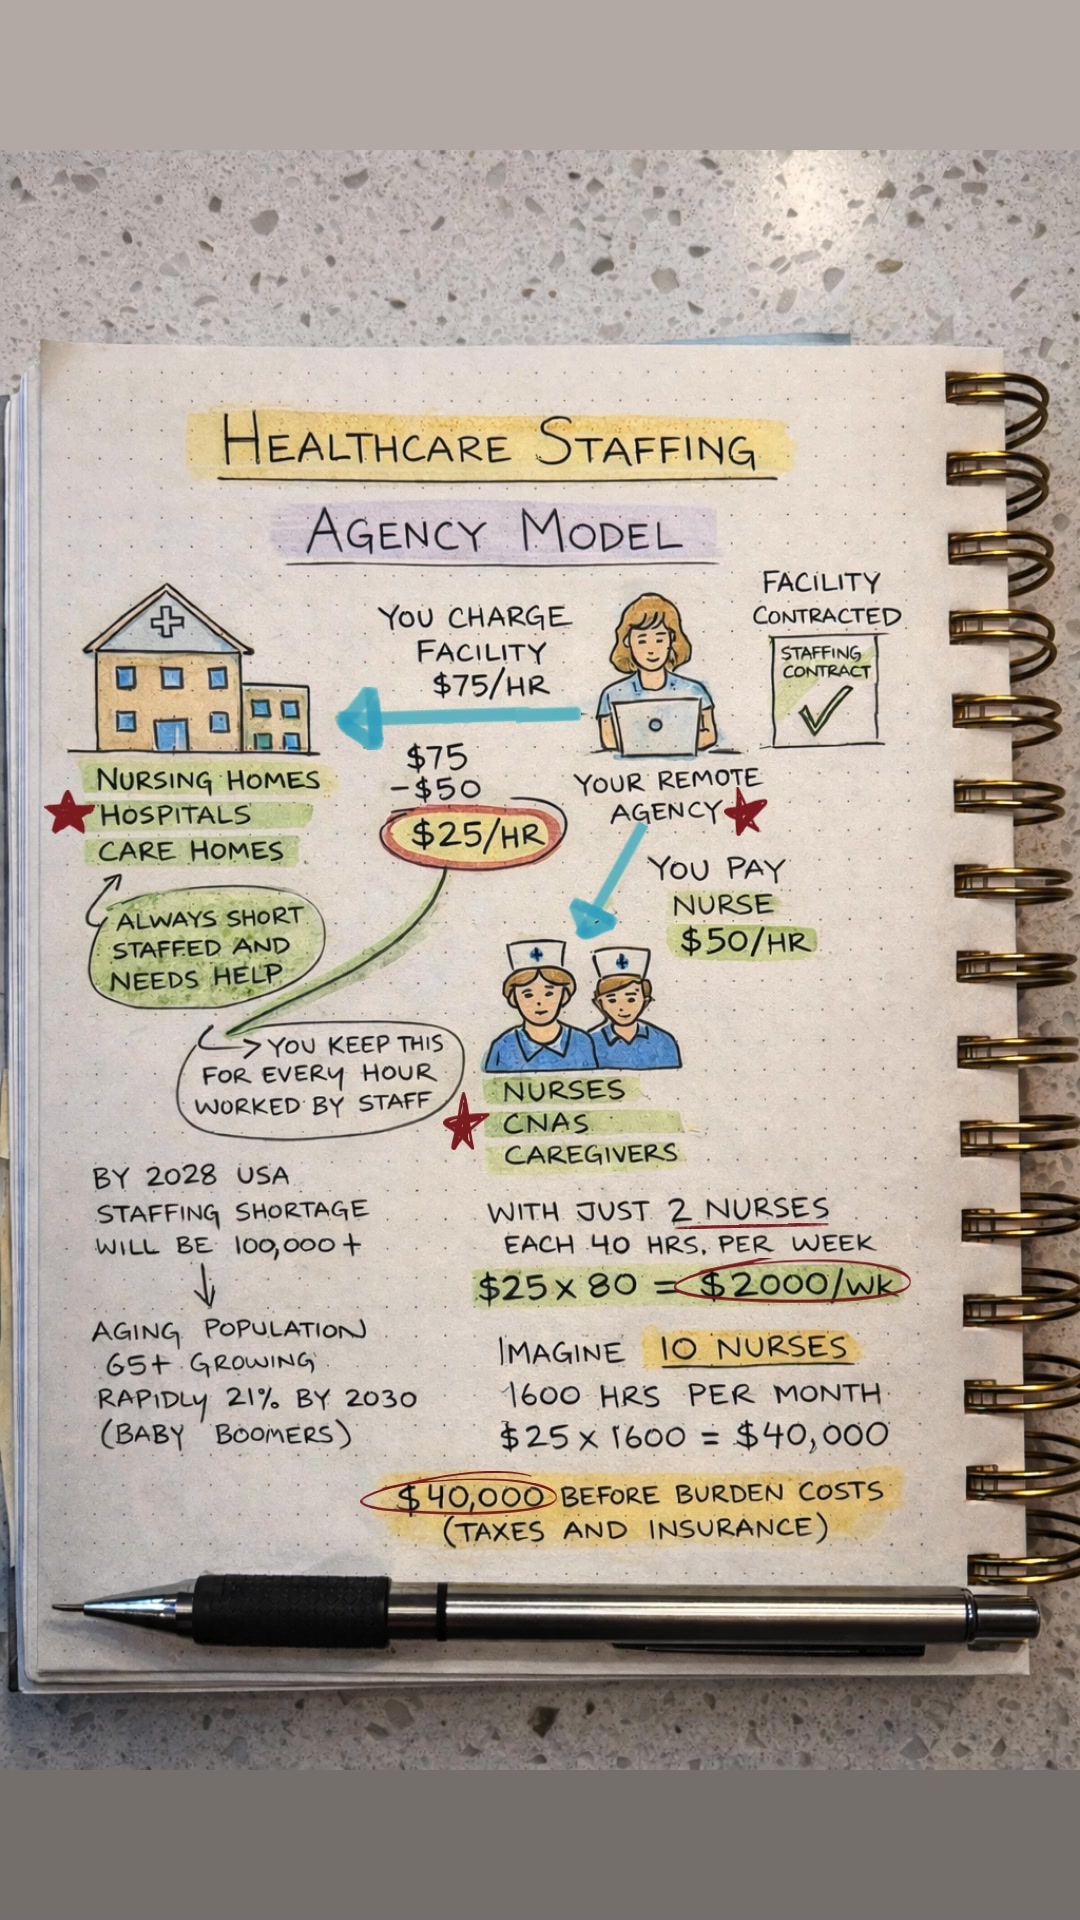 HEALTHCARE STAFFING
AGENCY MODEL
FACILITY
CONTRACTED
STAFFING
CONTRACT
YOU CHARGE
FACILITY
$75/HR
$75
-$50
$25/HR
YOUR REMOTE
AGENCY
NURSING HOMES
HOSPITALS
CARE HOMES
ALWAYS SHORT
STAFFED AND
NEEDS HELP
YOU PAY
NURSE
$50/HR
YOU KEEP THIS
FOR EVERY HOUR
WORKED BY STAFF
NURSES
CNAS
CAREGIVERS
BY 2028 USA
STAFFING SHORTAGE
WILL BE 100,000+
AGING POPULATION
65+ GROWING
RAPIDLY 21% BY 2030
(BABY BOOMERS)
WITH JUST 2 NURSES
EACH 40 HRS. PER WEEK
$25 x 80 = $2000/WK
IMAGINE 10 NURSES
1600 HRS PER MONTH
$25 x 1600 = $40,000
$40,000 BEFORE BURDEN COSTS
(TAXES AND INSURANCE)